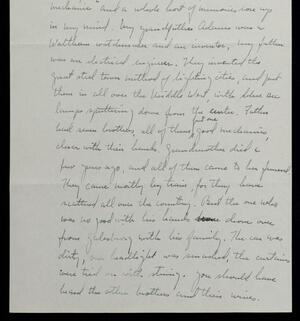 mechanics" and a whole host of memories rose up
in my mind. My grandfather Adams was a
Waltham and an inventor, my father
was an electrical engineer. They invented the
giant steel tower method of lighting cities, and put
them in all over the Middle West, with blue arc
lamps sputtering down from the center. Father
had seven brothers, all of them but one good mechanics,
clever with their hands. Grandmother died a
few years ago, and all of them came to her funeral.
They came mostly by train, for they have
scattered all over the country. But the one who
was no good with his hands drove over
from Galesburg with his family. The car was
dirty, one headlight was smashed, the curtains
were tied on with string. You should have
heard the other brothers and their wives.